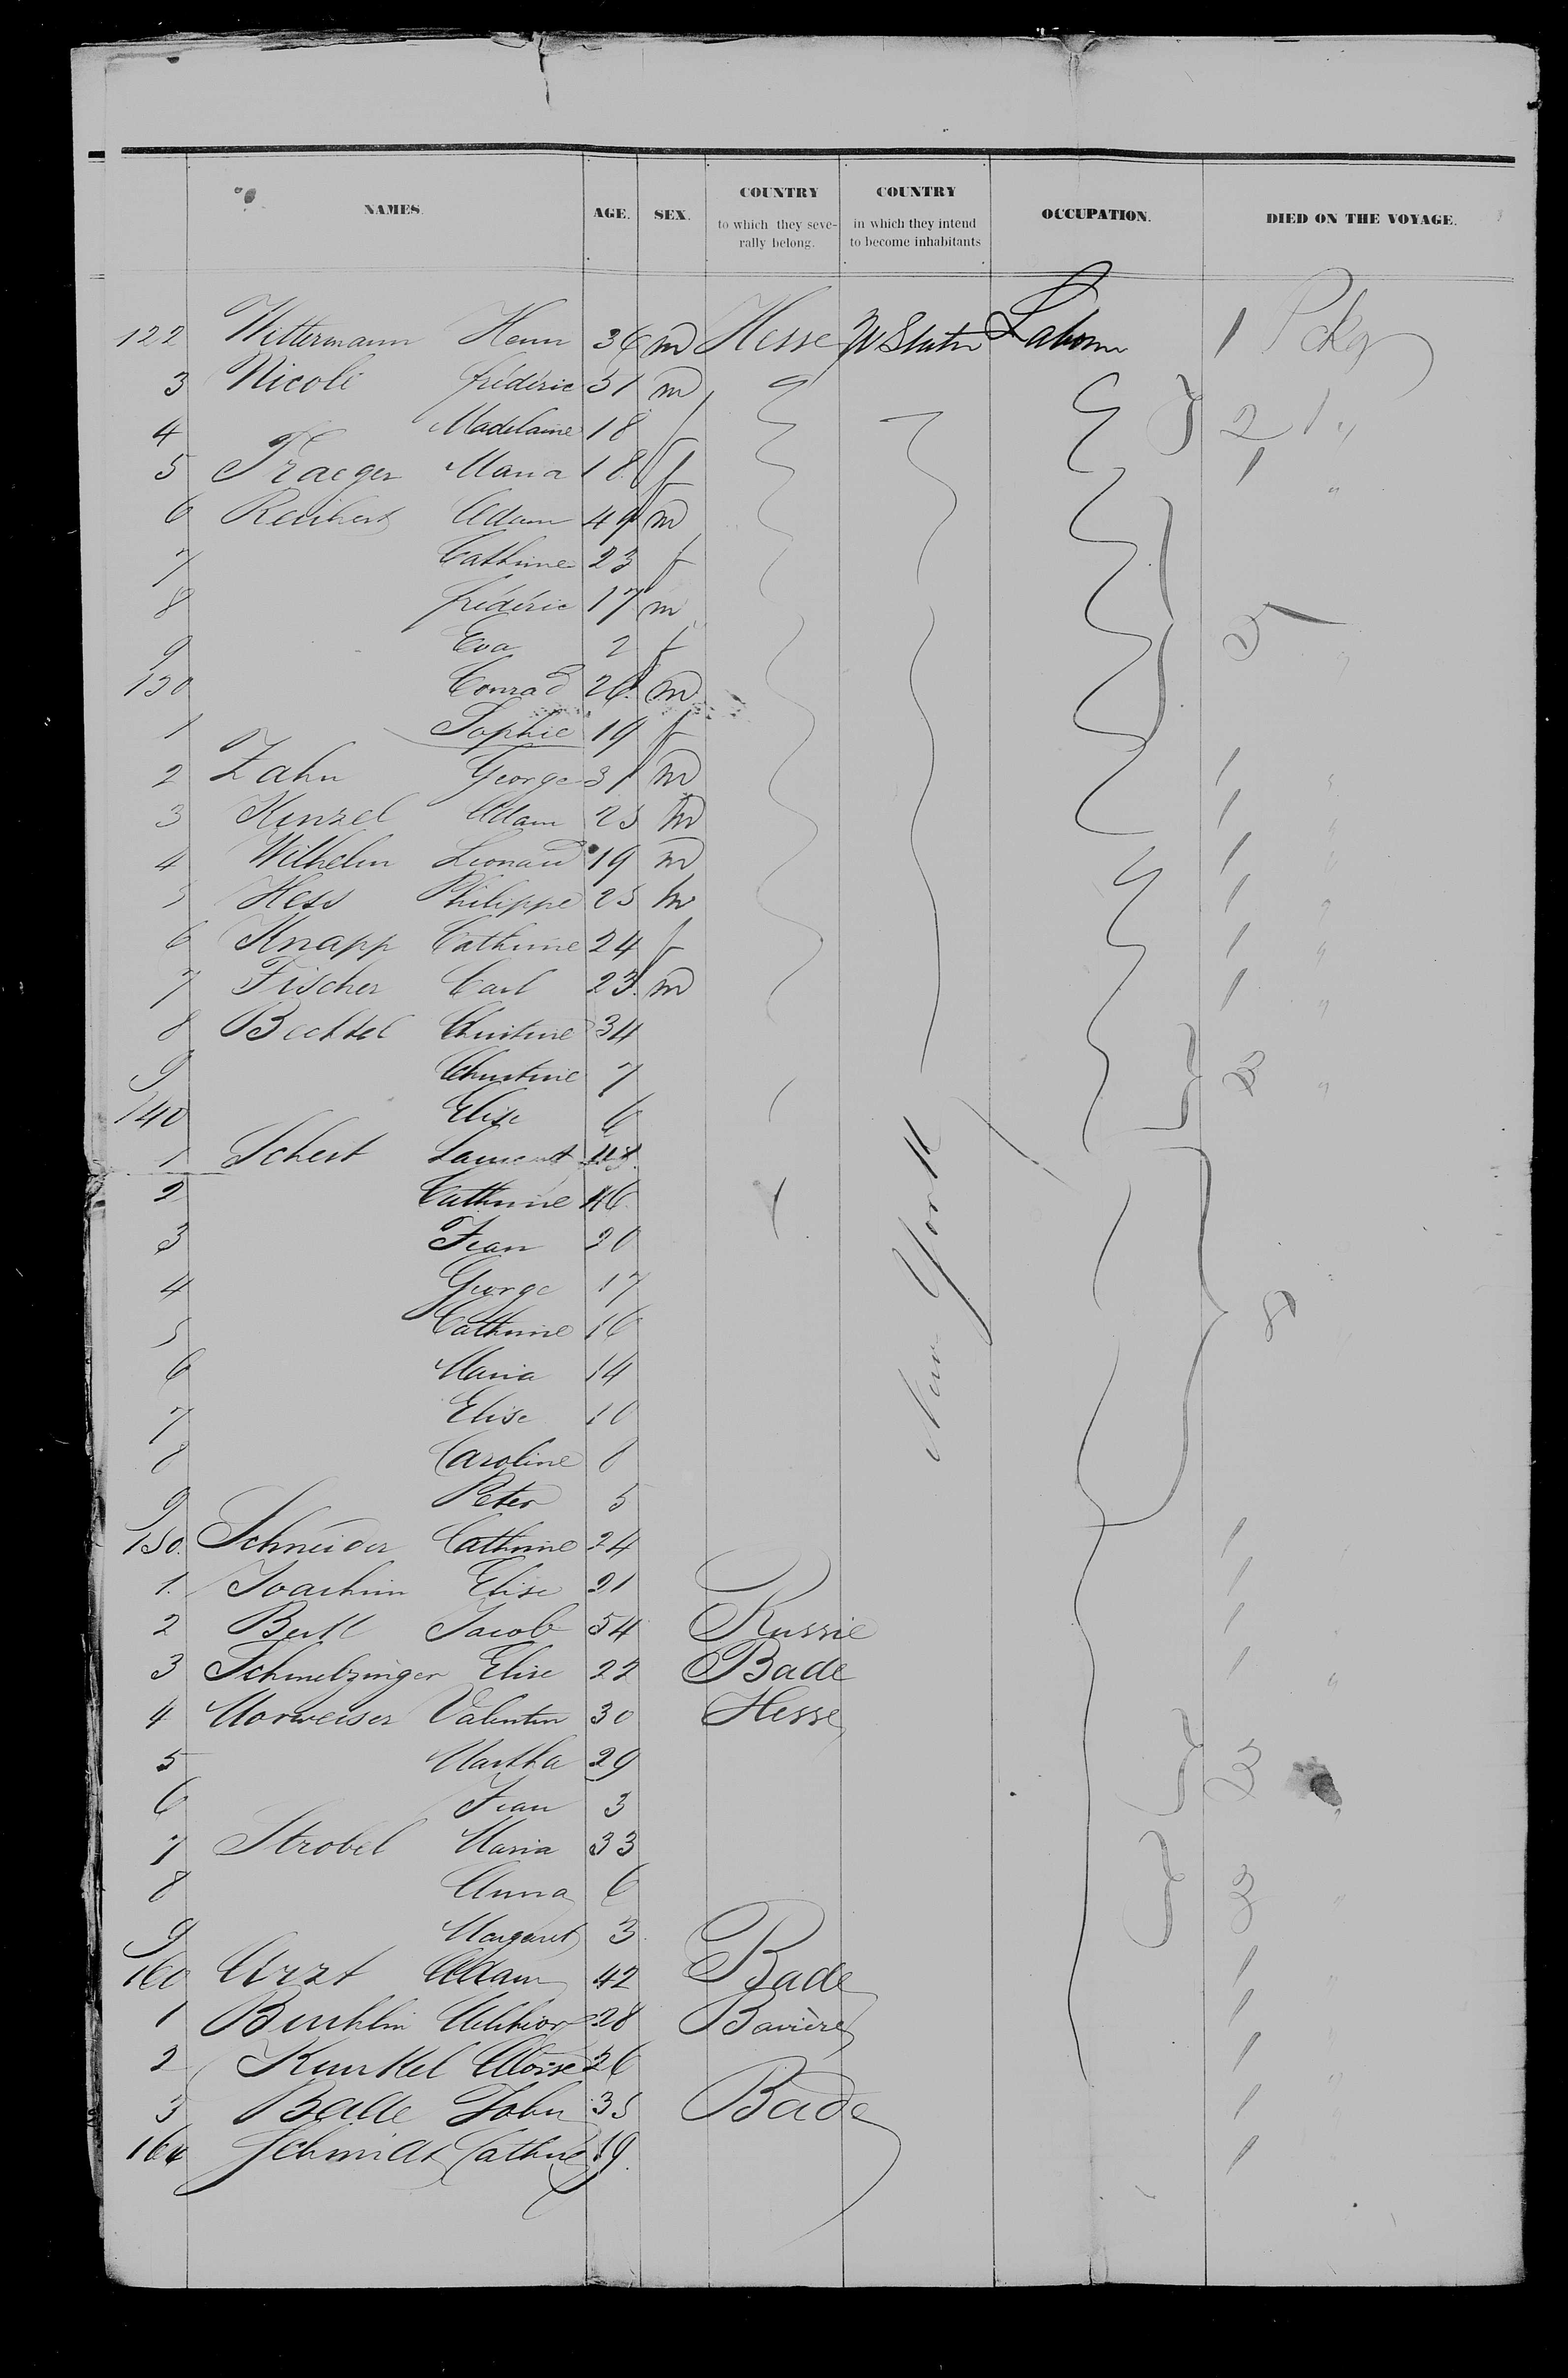 NAMES. AGE. SEX. COUNTRY to which they severally belong. COUNTRY in which they intend to become inhabitants OCCUPATION. DIED ON THE VOYAGE.
122 Wittermann Henri 36 m Hesse 1 Pckg
3 Nicoli frédéric 51 m
4 Madelaine 18 f 2 1 "
5 Traeger Maria 18 f 1 "
6 Adam 49 m
7 Cathrine 23 f
8 frédéric 17 m
9 Eva 2 f
130 Conrad 26 m
1 Sophie 19 f
2 Zahn George 31 m 1 "
3 Kinzel Adam 25 m 1 "
4 Wilhelm Leonard 19 m 1 "
5 Hess Philippe 25 m 1 "
6 Knapp Cathrine 24 f 1 "
7 Fischer Carl 23 m 1 "
8 Bechtel Christine 34
9 Christine 7 3 "
140 Elise 6
1
2 Cathrine 46
3 Jean 20
4 George 17
5 Cathrine 16
6 Maria 14
7 Elise 10
8 Caroline 8
9 Peter 5
New York
150 Schneider Cathrine 24 1
1 Joachim Elise 21 1
2 Jacob 54 Russie 1
3 Schmelzinger Elise 22 Bade 1 "
4 Morweiser Valentin 30 Hesse
5 Martha 29 3
6 Jean 3 "
7 Strobel Maria 33
8 Anna 6 3 "
9 Margaret 3
160 Arzt Adam 42 Bade 1 "
1 Melchior 28 Bavière 1 "
2 Kunkel 26 1 "
3 Balle John 35 Bade 1 "
164 Schmidt Cathne 19 1